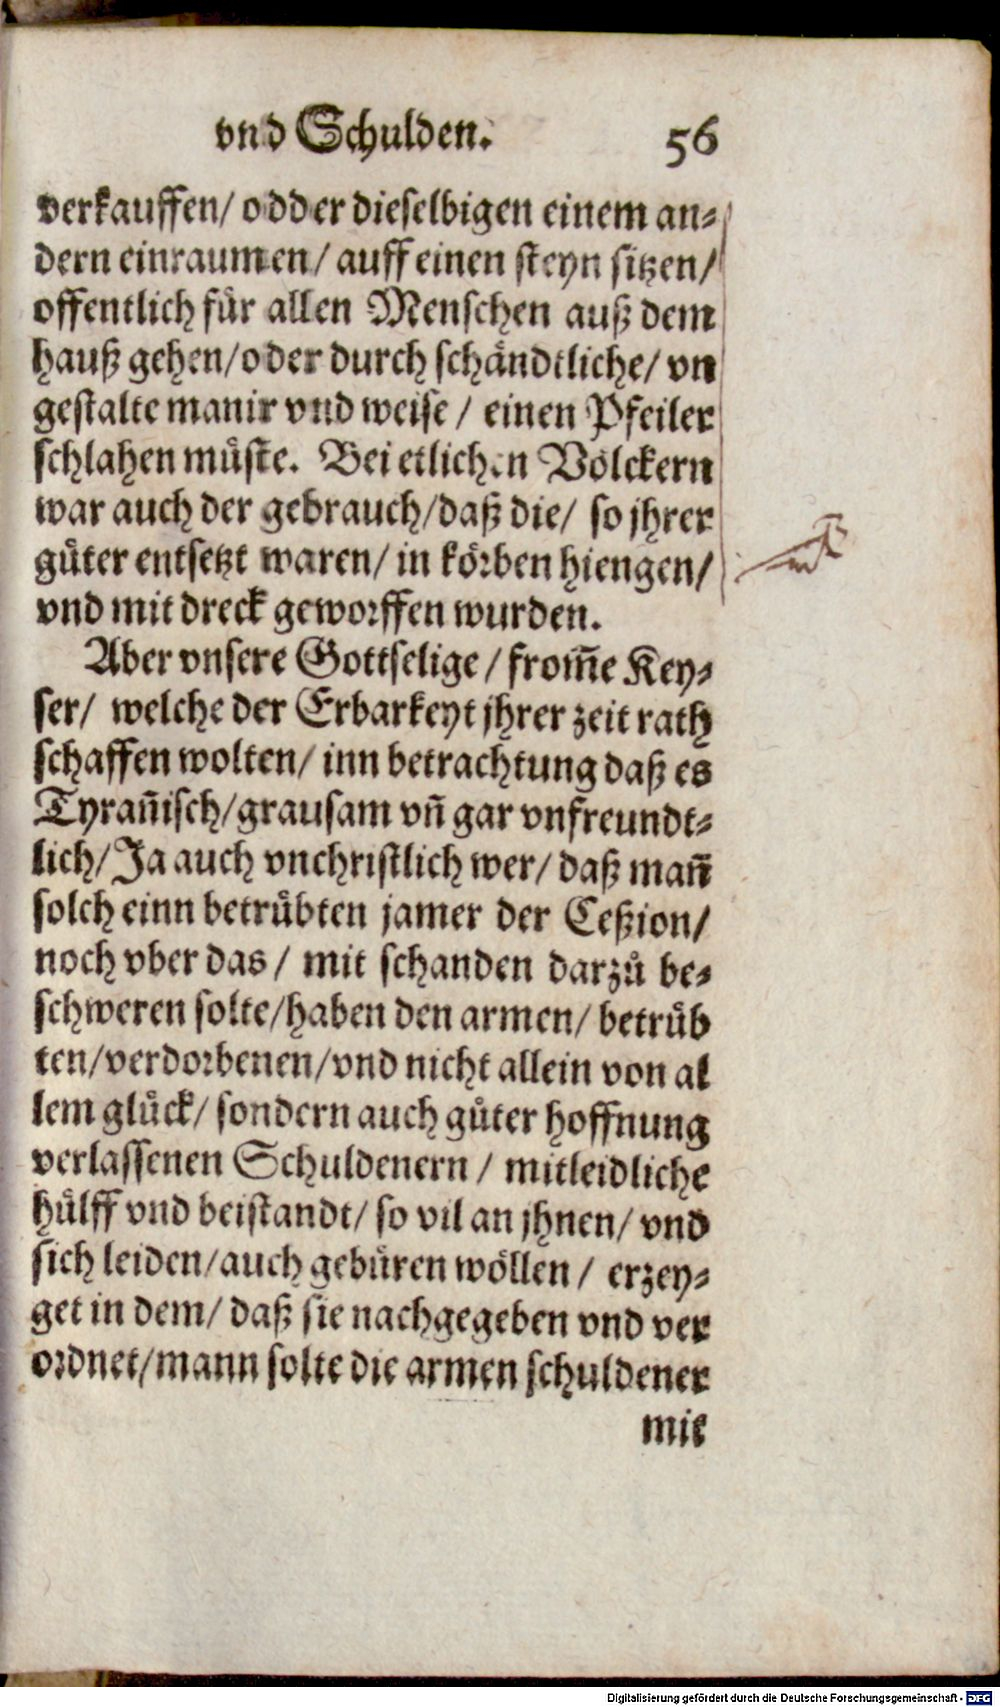 vnd Schulden. 56
verkauffen/ odder dieselbigen einem an⸗
dern einraumen/ auff einen steyn sitzen/
offentlich für allen Menschen auß dem
hauß gehen/oder durch schändtliche/ vn
gestalte manir vnd weise / einen Pfeiler
schlahen müste. Bei etlichen Völckern
war auch der gebrauch/daß die/ so jhrer
güter entsetzt waren/ in körben hiengen/
vnd mit dreck geworffen wurden.
Aber vnsere Gottselige / from̃e Key⸗
ser/ welche der Erbarkeyt jhrer zeit rath
schaffen wolten/ inn betrachtung daß es
Tyrañisch/grausam vñ gar vnfreundt⸗
lich/Ja auch vnchristlich wer/ daß mañ
solch einn betrübten jamer der Ceßion/
noch vber das / mit schanden darzů be⸗
schweren solte/haben den armen/ betrüb
ten/verdorbenen/vnd nicht allein von al
lem glück/ sondern auch güter hoffnung
verlassenen Schuldenern / mitleidliche
hülff vnd beistandt/ so vil an jhnen/ vnd
sich leiden/auch gebüren wöllen / erzey⸗
get in dem/ daß sie nachgegeben vnd ver
ordnet/mann solte die armen schuldener
mit
Digitalisierung gefördert durch die Deutsche Forschungsgemeinschaft - DFG